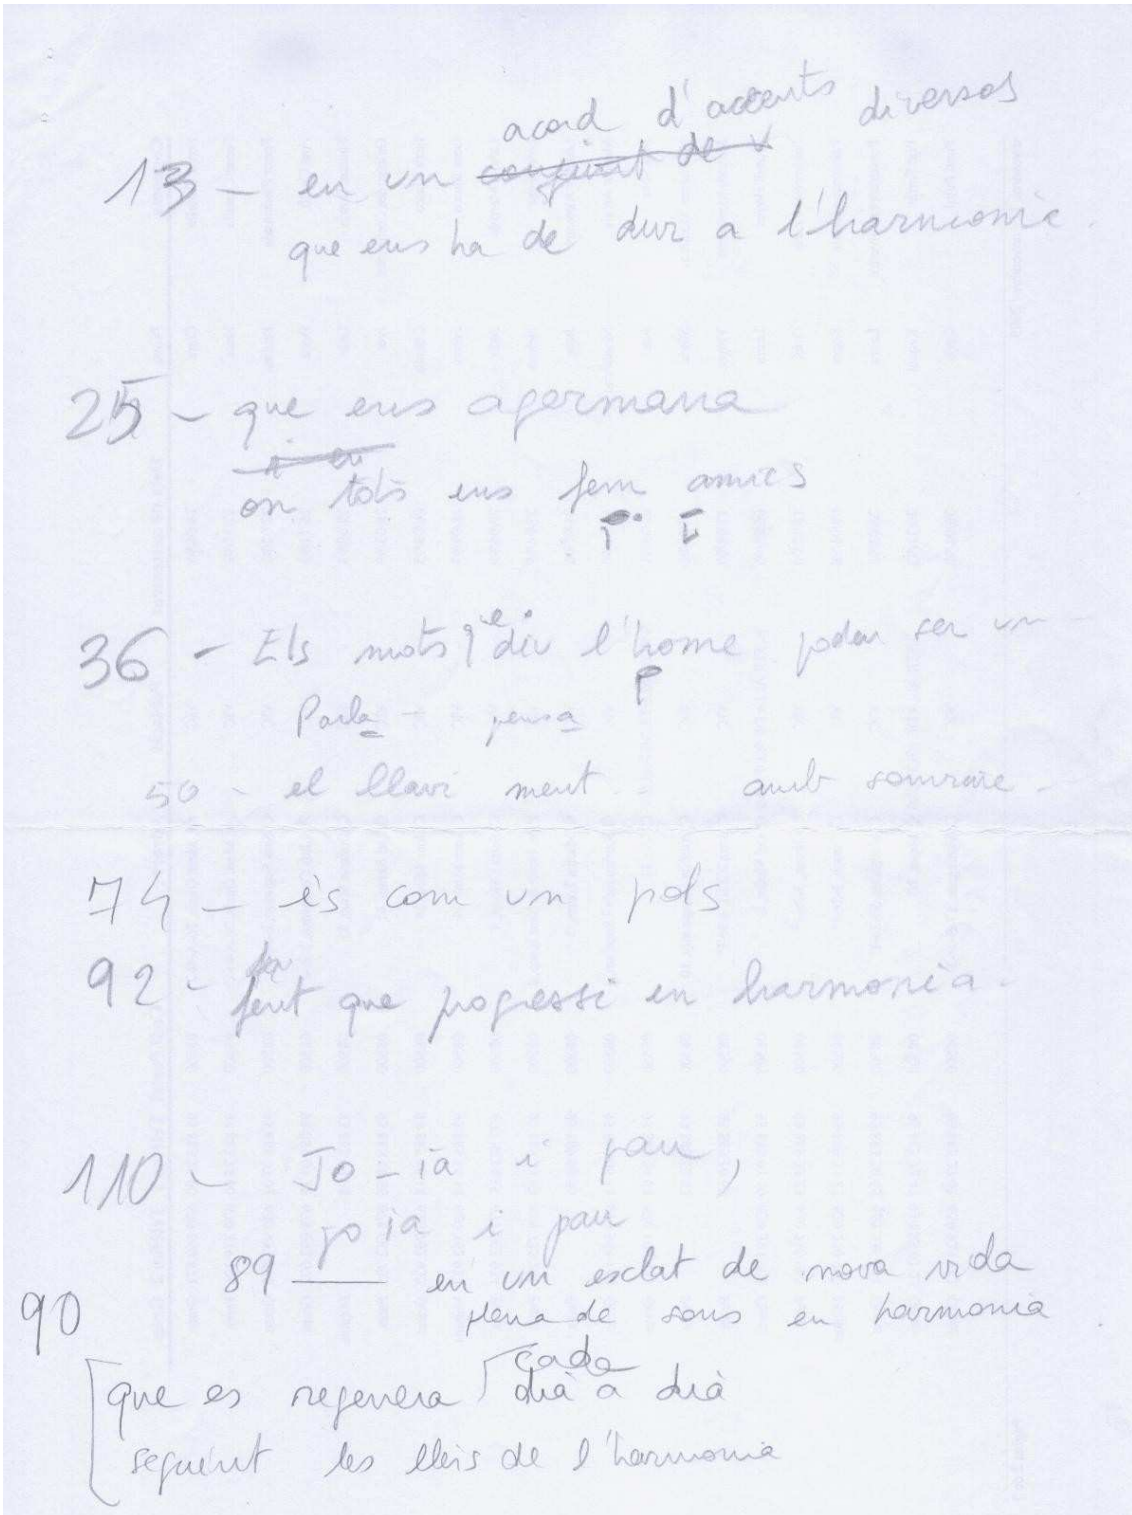 acord d'accents diversos
13 - en un conjunt de v
que ens ha de dur a l'harmonia.
25 - que ens agermana
i en
on tots ens fem amics
P. L
36 - Els mots q̍ue diu l'home poden ser un -
P
Parla - pensa
50 - el llavi ment... amb somriure -
74 - és com un pols
92 - fent que progressi en harmonia.
110 - Jo-ia i pau,
joia i pau
89 — en un esclat de nova vida
90 plena de sons en harmonia.
cada
que es regenera dia a dia
seguint les lleis de l'harmonia